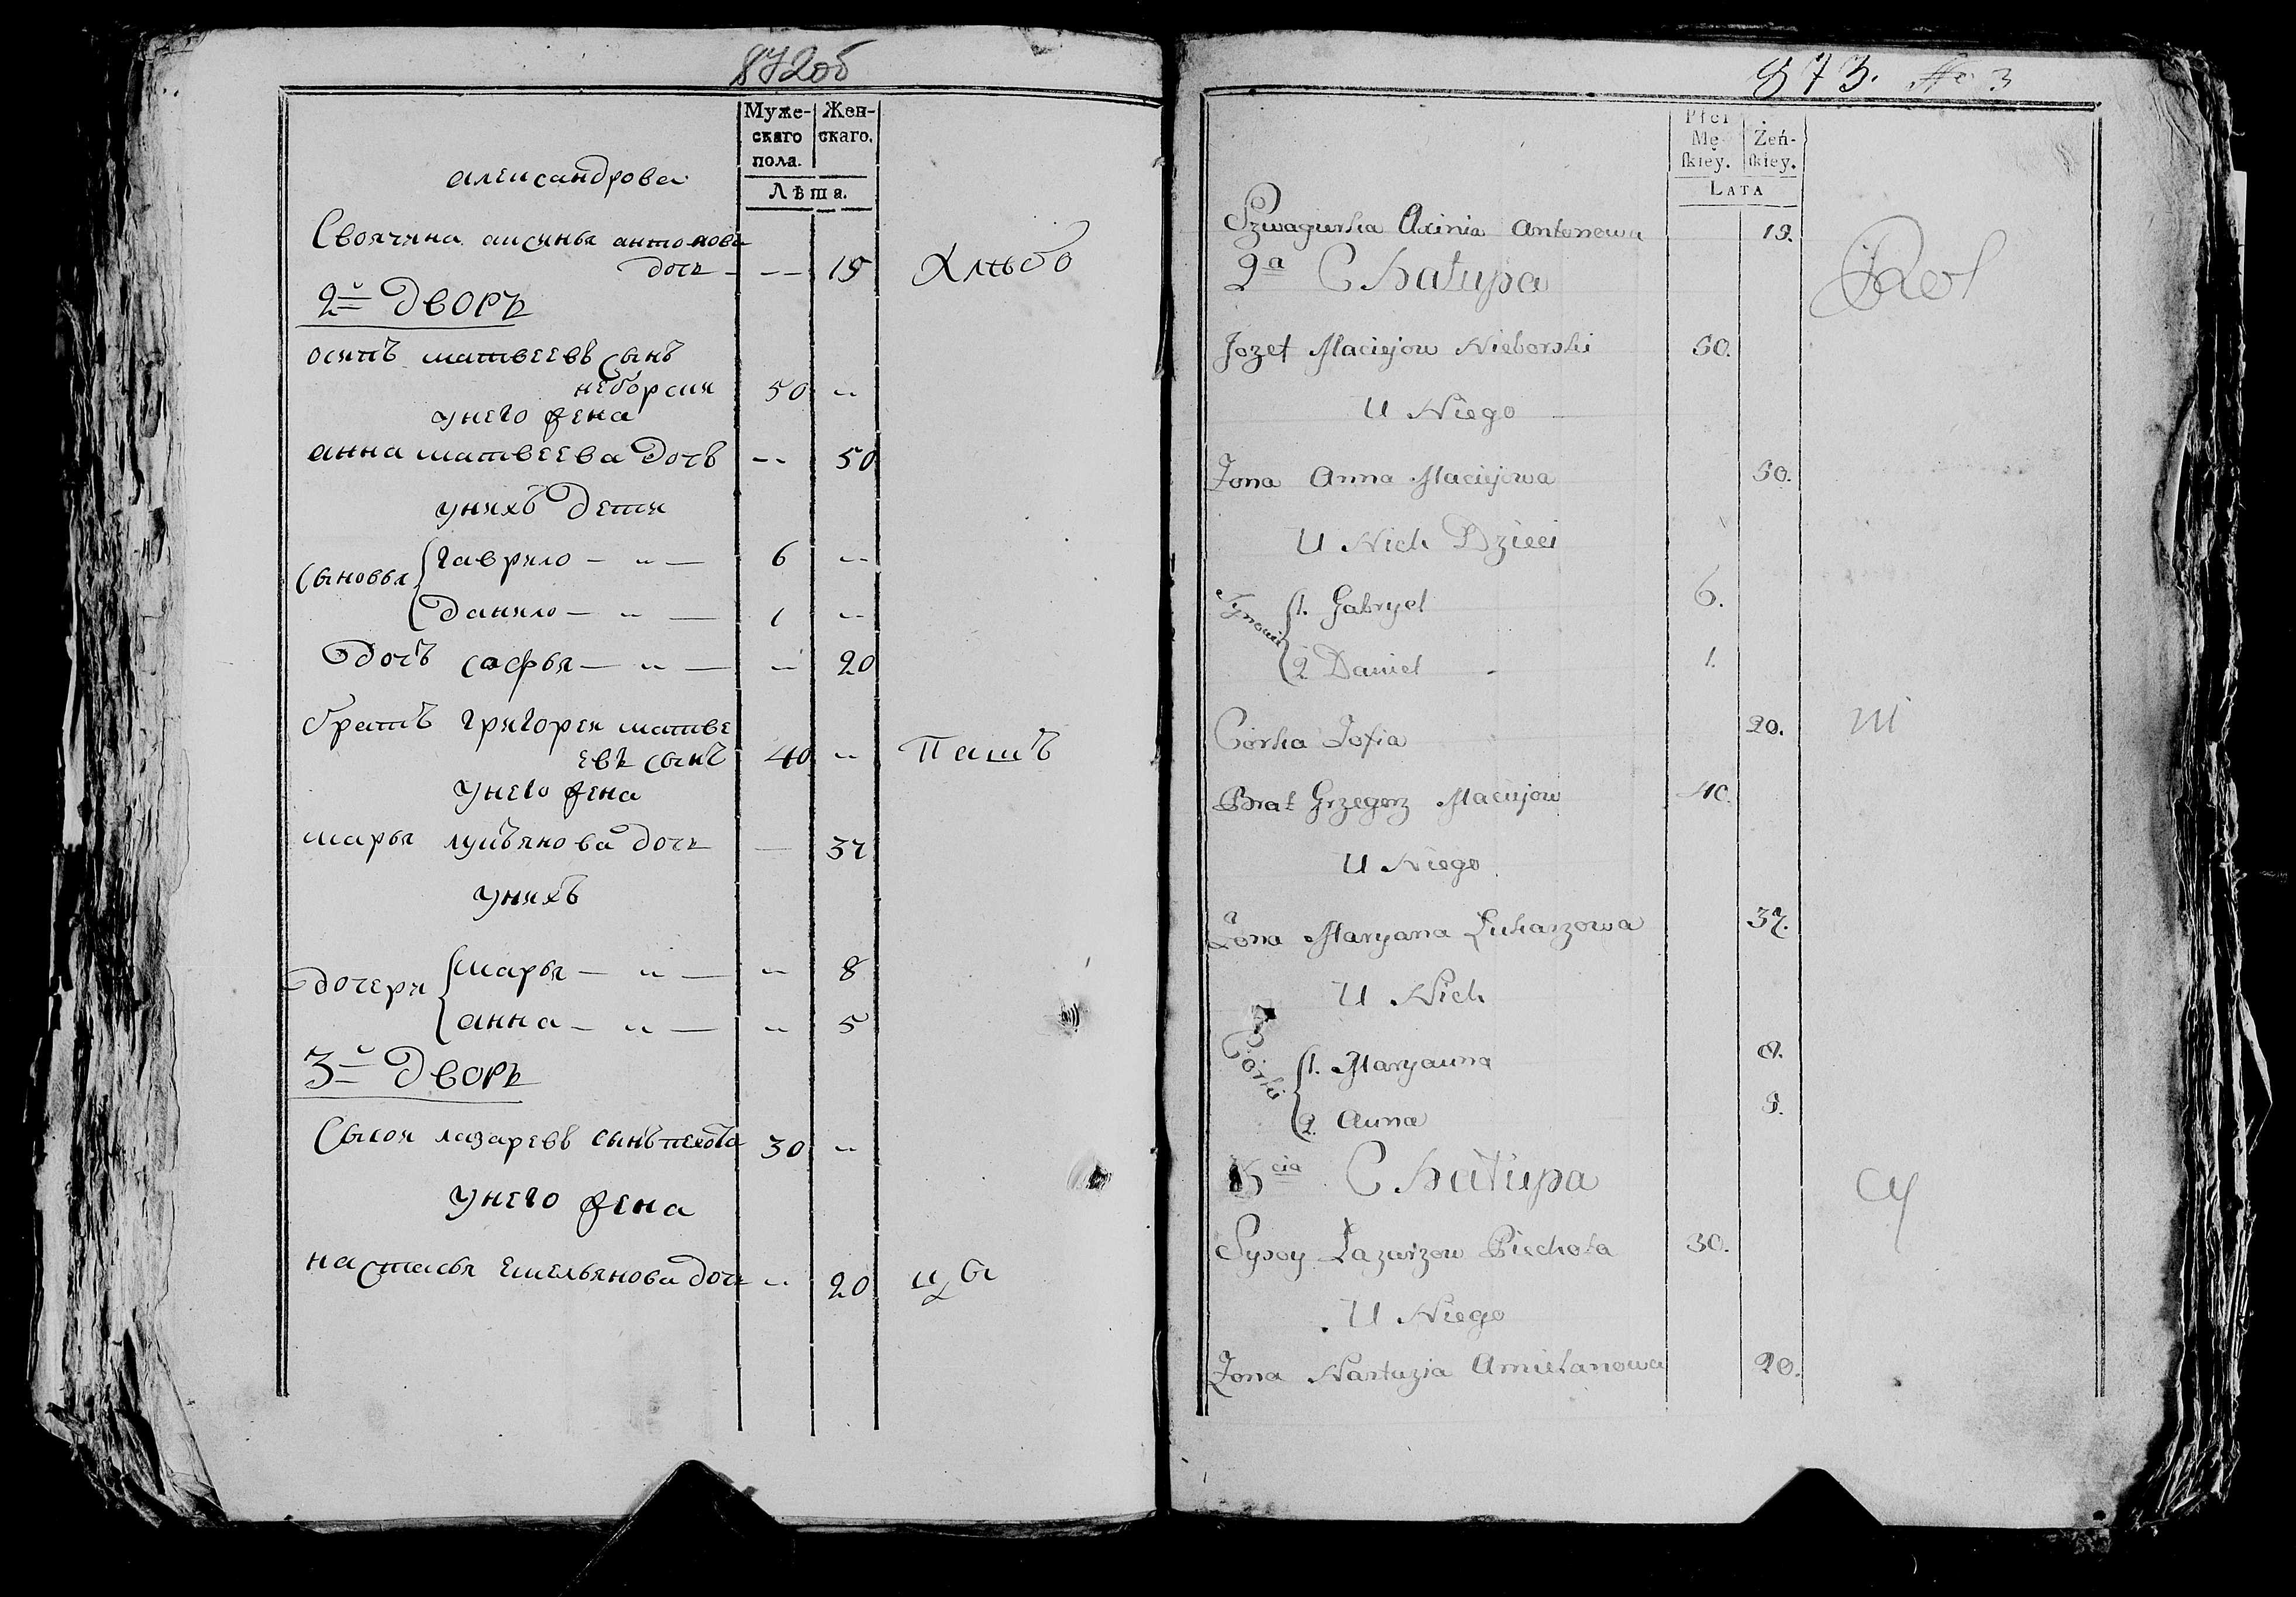 872об
Муже- Жен-
скаго скаго.
пола.
Лѣта.
александрова
Своячина аксинья антонова
дочь - -- 19 Хлѣбо
2й Дворъ
осипъ матвеевъ сынъ
неборски 50 --
унего жена
анна матвеева дочъ -- 50
унихъ дети
сыновья гаврило — „ — 6 --
данило — „ — 1 --
дочъ софья — „ — -- 20
братъ григореи матве
евъ сынъ 40 -- Пашъ
унего жена
марья лукъянова дочь — 37
унихъ
дочери марья — „ — -- 8
анна — „ — -- 5
3й Дворъ
Сысои лазаревъ сынъ пехота 30 --
унего жена
настасья емельянова дочь -- 20
873. No 3
Płci
Mę- Żeń-
ſkiey. ſkiey.
LATA
Szwagierka Axinia Antonowa 19.
2a Chałupa
Jozef Maciejow Nieborski 50.
U Niego
Żona Anna Maciejowa 50.
U Nich Dzieci
Synowie 1. Gabryel 6.
2 Daniel - 1.
Córka Zofia 20.
Brat Grzegorz Maciejow 40.
U Niego
Żona Maryana Łukaszowa 37.
U Nich
Córki 1. Maryanna 8.
2. Anna 5.
3cia Chałupa
Sysoy Łazarzow Piechota 30.
U Niego
Żona Nastazia Amielanowa 20.